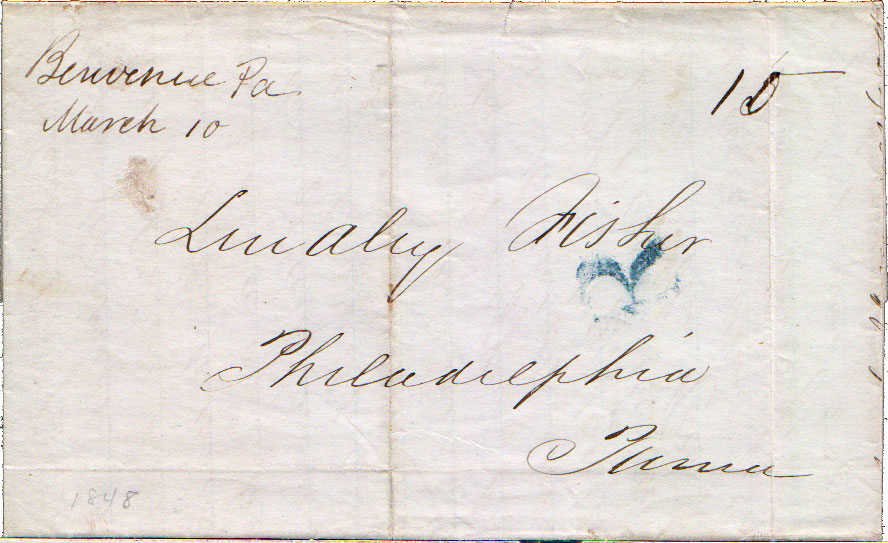 Benvenue Pa
March 10
15
Lindley Fisher
Philadelphia
Penna
1848